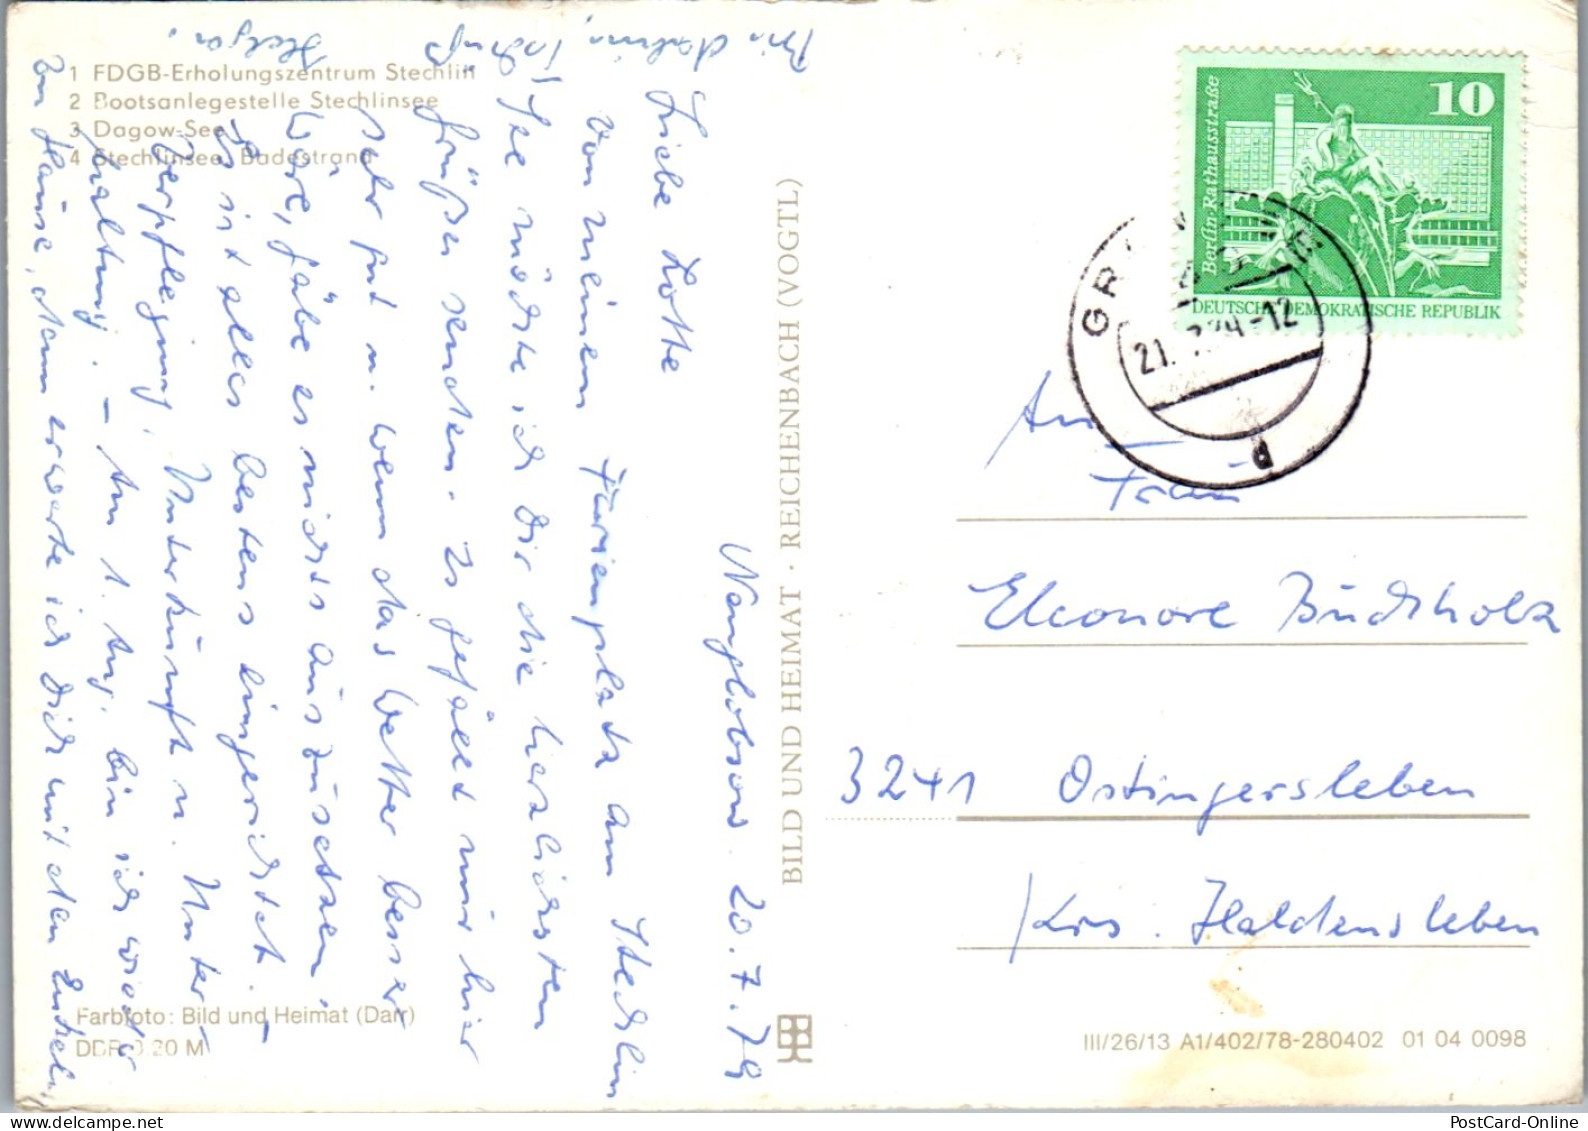 1 FDGB-Erholungszentrum Stechlin
2 Bootsanlegestelle Stechlinsee
3 Dagow-See
4 Stechlinsee, Badestrand
Neuglobsow 20.7.79
Liebe Lotte
Von meinem Ferienplatz am Stechlin
See möchte ich Dir die herzlichsten
Grüße senden. Es gefällt mir hier
sehr gut u. wenn das Wetter besser
wäre, gäbe es nichts auszusetzen.
Es ist alles bestens eingerichtet.
Verpflegung, Unterkunft u. Unter-
haltung. – Am 1. Aug. bin ich wieder
zu Hause, dann erwarte ich Dich mit den Enkeln
Bis dahin
Gruß
Helga.
BILD UND HEIMAT · REICHENBACH (VOGTL)
10
Berlin·Rathausstraße
DEUTSCHE DEMOKRATISCHE REPUBLIK
21. -12
An
Frau
Eleonore Buchholz
3241 Ostingersleben
Krs. Haldensleben
Farbfoto: Bild und Heimat (Darr)
DDR 0 20 M
III/26/13 A1/402/78-280402 01 04 0098
PostCard-Online